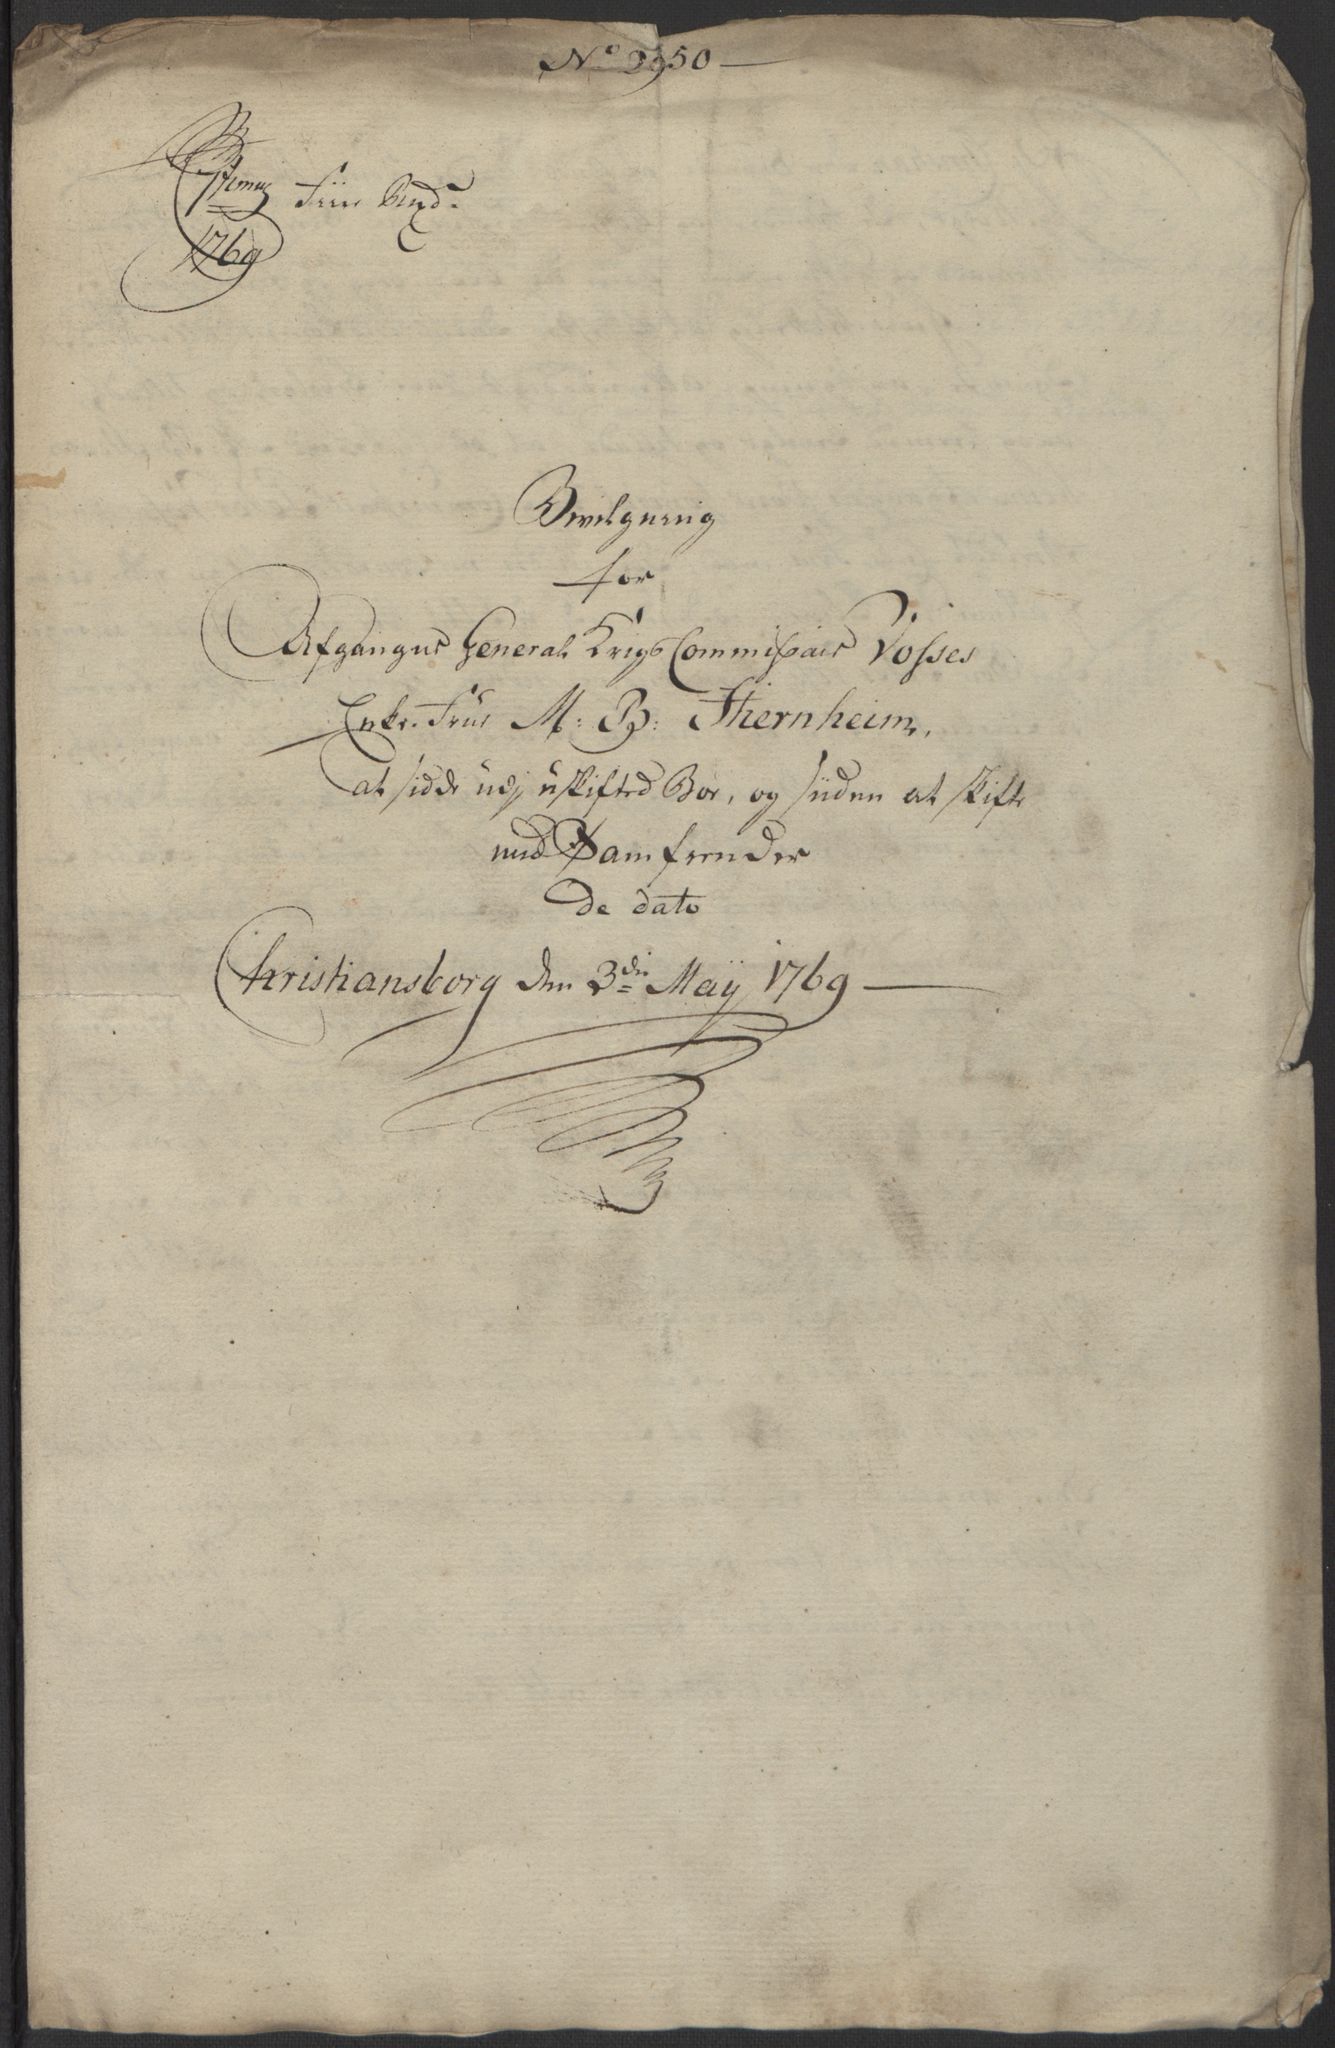 No 2950
1769
Bevilgning
for
Afgangne General Krigs Commissair Vosses
Enke. Frue M: B: Stiernheim,
at sidde udj uskifted Boe, og siiden at skifte
med Samfrender
de dato
Christiansborg den 3die Maij 1769